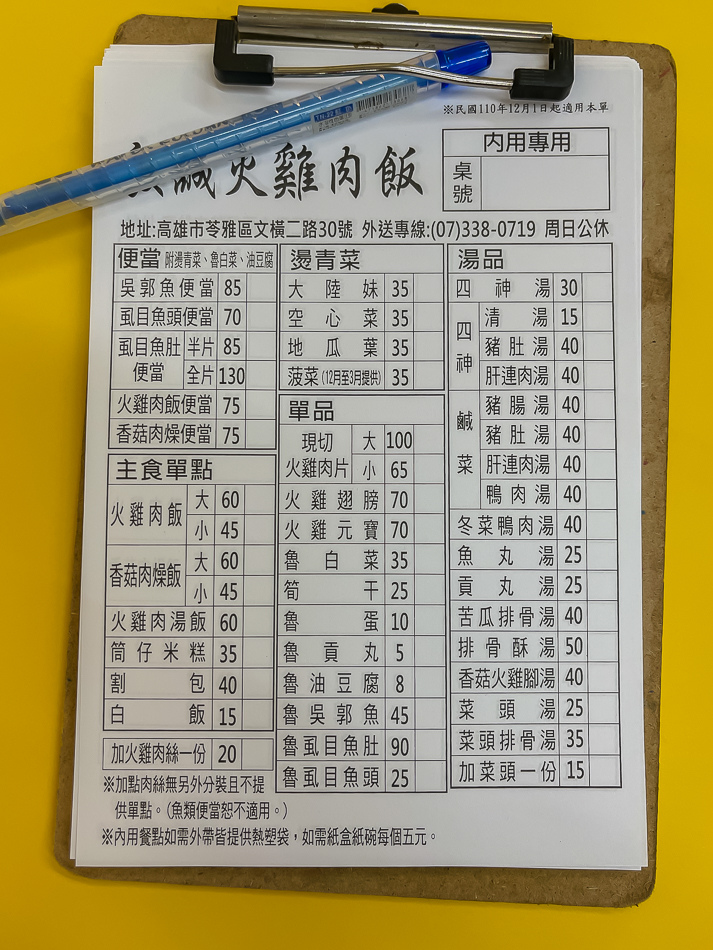 ※民國110年12月1日起適用本單
鹹火雞肉飯
內用專用
桌號
地址:高雄市苓雅區文橫二路30號 外送專線:(07)338-0719 周日公休
便當 附燙青菜、魯白菜、油豆腐
吳郭魚便當 85
虱目魚頭便當 70
虱目魚肚便當 半片 85
全片 130
火雞肉飯便當 75
香菇肉燥便當 75
主食單點
火雞肉飯 大 60
小 45
香菇肉燥飯 大 60
小 45
火雞肉湯飯 60
筒仔米糕 35
割包 40
白飯 15
加火雞肉絲一份 20
※加點肉絲無另外分裝且不提
供單點。(魚類便當恕不適用。)
※內用餐點如需外帶皆提供熱塑袋，如需紙盒紙碗每個五元。
燙青菜
大陸妹 35
空心菜 35
地瓜葉 35
菠菜(12月至3月提供) 35
單品
現切火雞肉片 大 100
小 65
火雞翅膀 70
火雞元寶 70
魯白菜 35
筍干 25
魯蛋 10
魯貢丸 5
魯油豆腐 8
魯吳郭魚 45
魯虱目魚肚 90
魯虱目魚頭 25
湯品
四神湯 30
四神 清湯 15
豬肚湯 40
肝連肉湯 40
鹹菜 豬腸湯 40
豬肚湯 40
肝連肉湯 40
鴨肉湯 40
冬菜鴨肉湯 40
魚丸湯 25
貢丸湯 25
苦瓜排骨湯 40
排骨酥湯 50
香菇火雞腳湯 40
菜頭湯 25
菜頭排骨湯 35
加菜頭一份 15